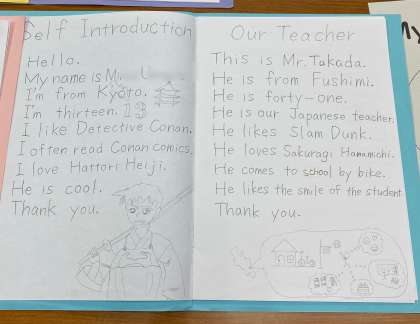 Self Introduction
Hello.
My name is
I'm from Kyoto.
I'm thirteen. 13
I like Detective Conan.
I often read Conan comics.
I love Hattori Heiji.
He is cool.
Thank you.
Our Teacher
This is Mr. Takada.
He is from Fushimi.
He is forty-one.
He is our Japanese teacher.
He likes Slam Dunk.
He loves Sakuragi Hanamichi.
He comes to school by bike.
He likes the smile of the student
Thank you.
My